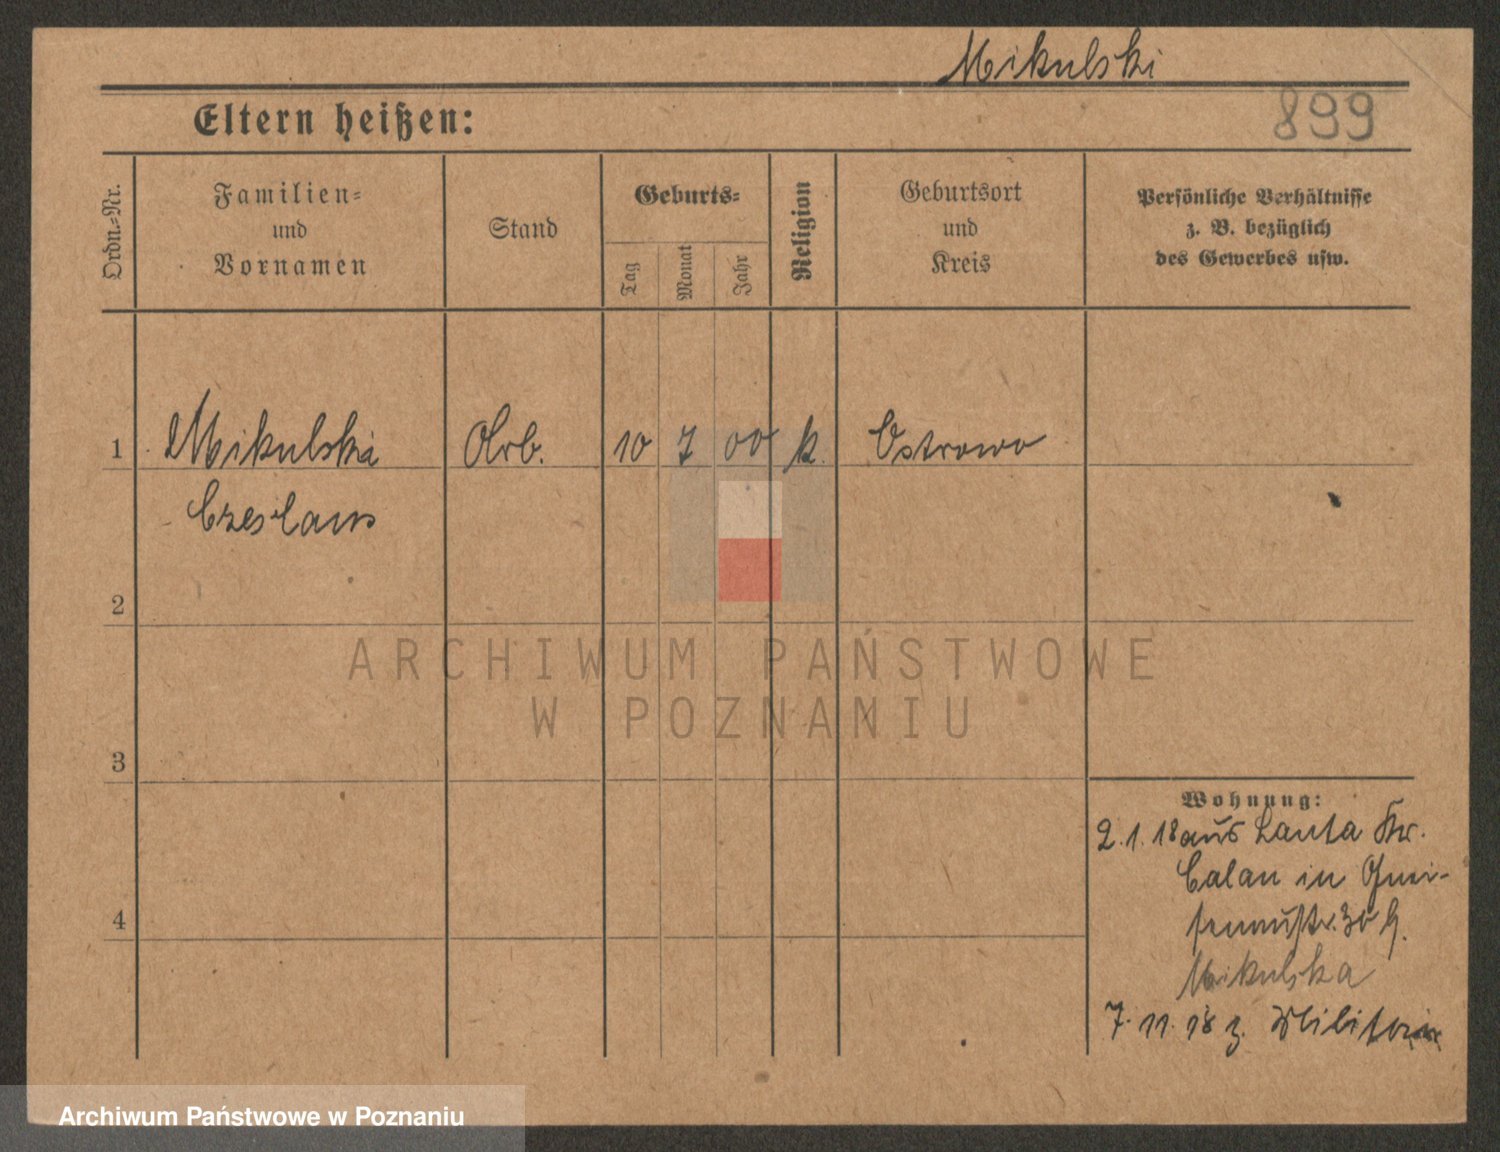 Mikulski
Eltern heißen:
899
Ordn.=Nr.
Familien=
und
Vornamen
Stand
Geburts=
Tag
Monat
Jahr
Religion
Geburtsort
und
Kreis
Persönliche Verhältnisse
z. B. bezüglich
des Gewerbes usw.
1 Mikulski Arb. 10 7 00 k. Ostrowo
Czeslaus
2
ARCHIWUM PAŃSTWOWE
W POZNANIU
3
Wohnung:
2.1.18 aus Lauta Kr.
Calau in Gnei-
senaustr. 30 b.
Mikulska
4
7.11.18 z. Militär
Archiwum Państwowe w Poznaniu